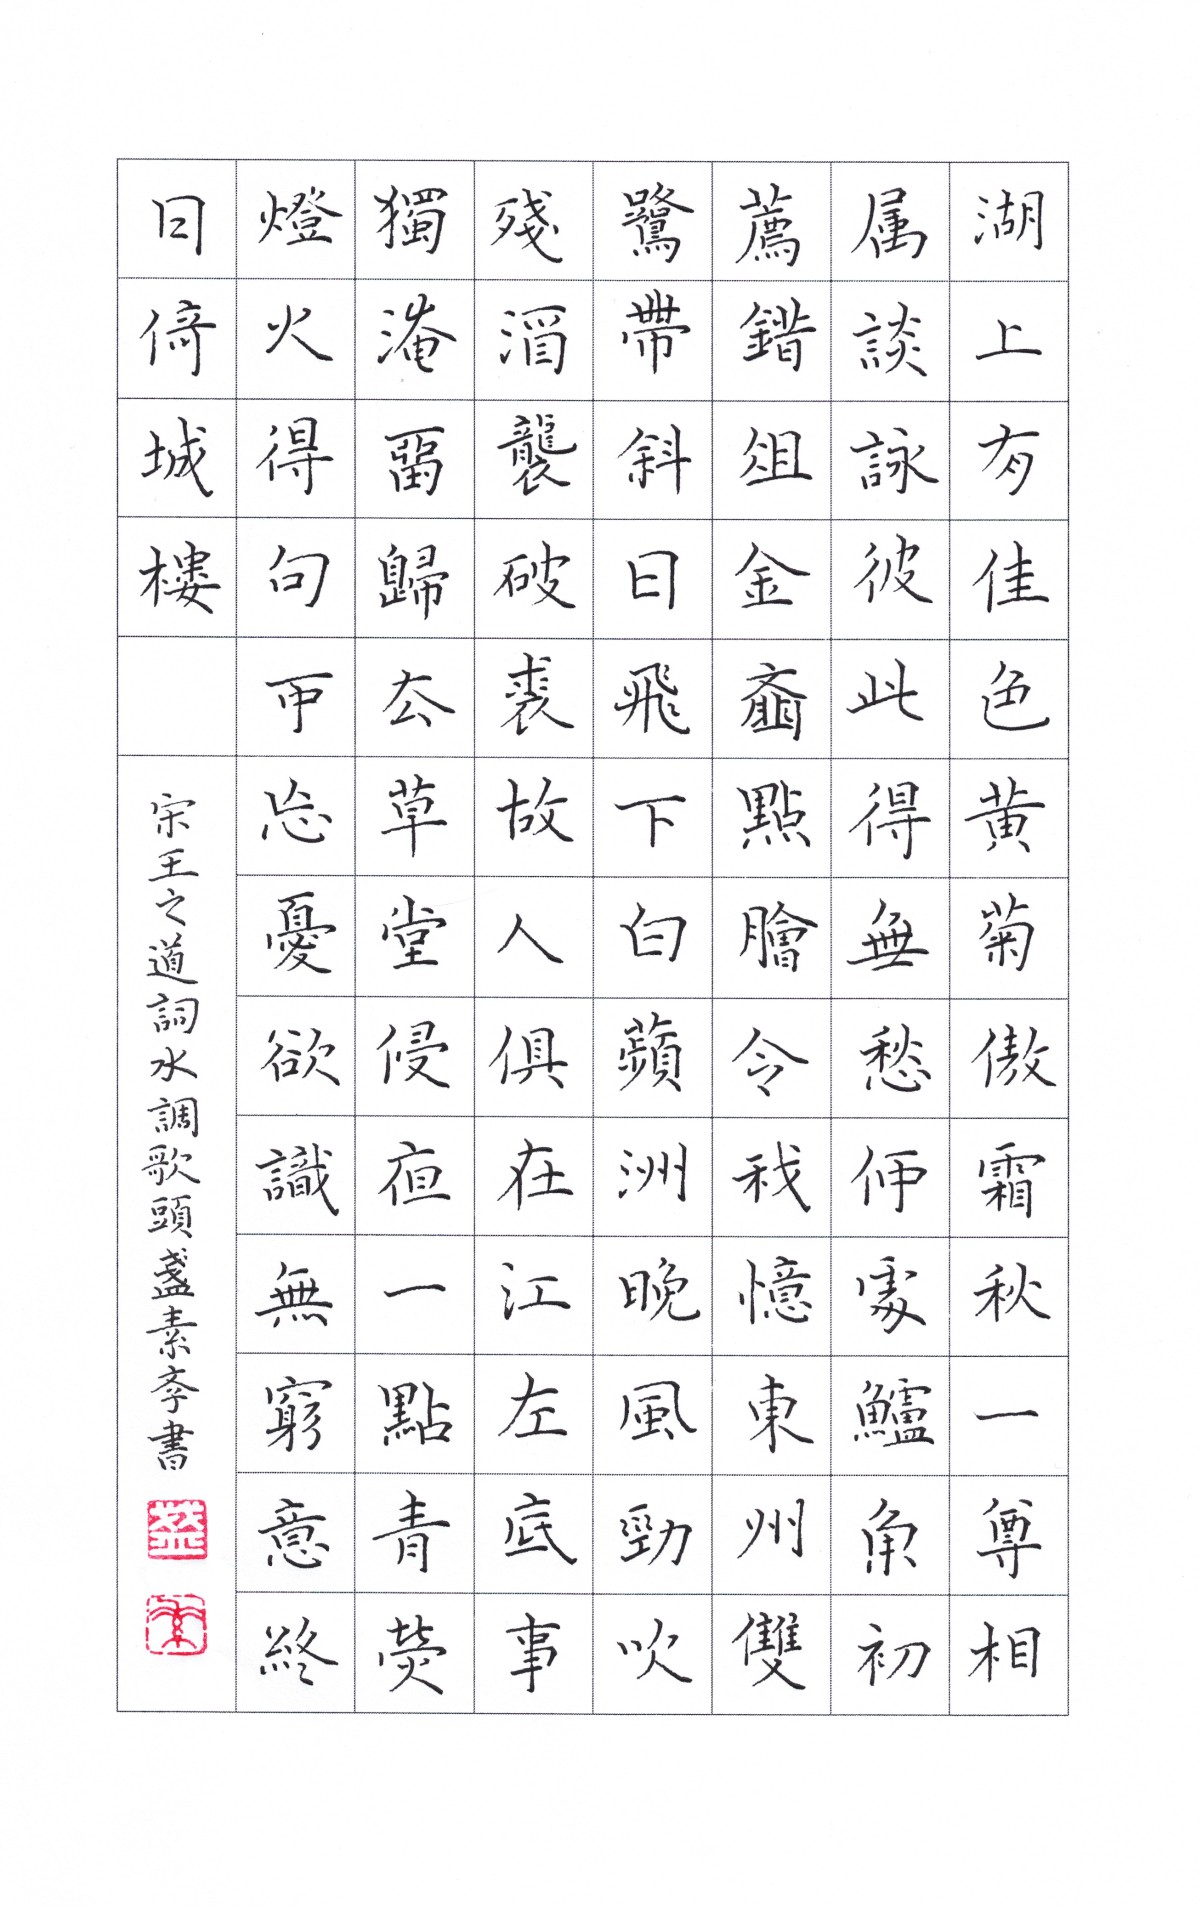 湖上有佳色黄菊傲霜秋一尊相
属談詠彼此得無愁何處鱸魚初
薦錯俎金虀點膾令我憶東州雙
鷺帶斜日飛下白蘋洲晚風勁吹
殘酒襲破裘故人俱在江左底事
獨淹留歸去草堂侵夜一點青熒
燈火得句可忘憂欲識無窮意終
日倚城樓
宋王之道詞水調歌頭盞素李書